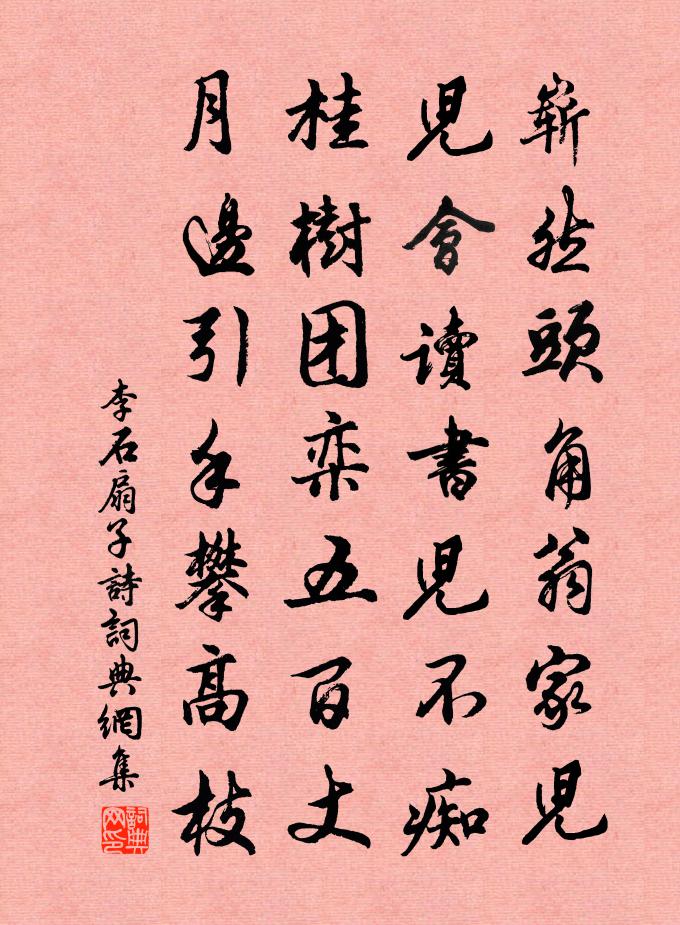 嶄然頭角翁家兒
兒會讀書兒不痴
桂樹团栾五百丈
月邊引手攀高枝
李石扇子詩詞典網集
詞典网印